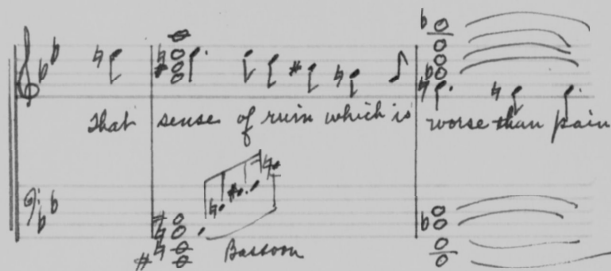 That sense of ruin which is worse than pain
Bassoon